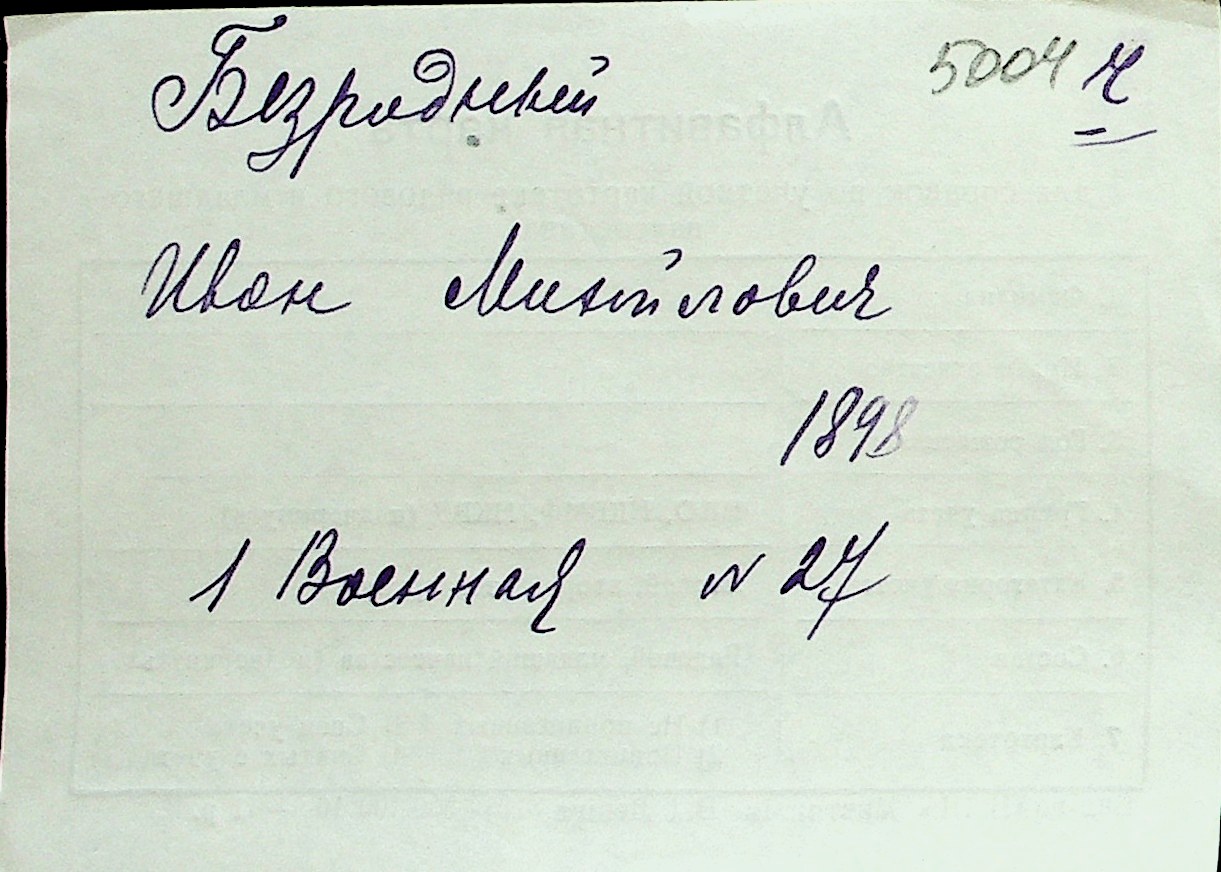 Безродный 5004 Ч
Иван Михайлович
1898
1 Военная N 27